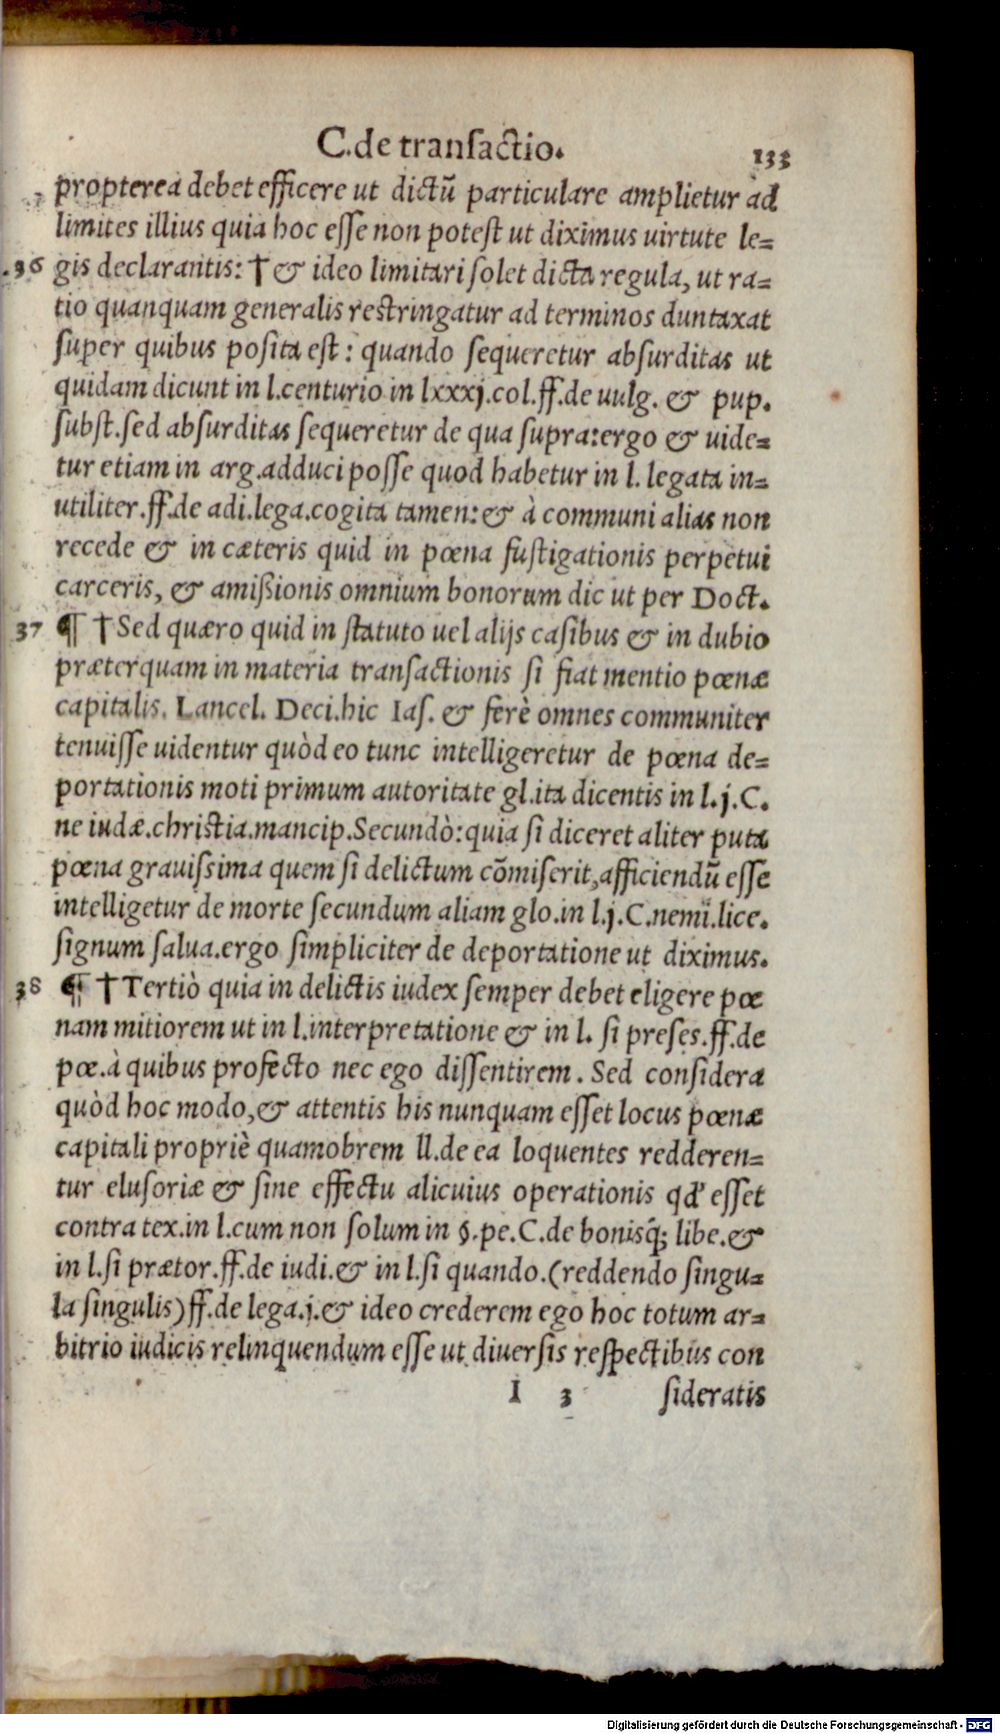 C.de transactio. 133
propterea debet efficere ut dictũ particulare amplietur ad
limites illius quia hoc esse non potest ut diximus uirtute le=
.36 gis declarantis: † & ideo limitari solet dicta regula, ut ra=
tio quanquam generalis restringatur ad terminos duntaxat
super quibus posita est: quando sequeretur absurditas ut
quidam dicunt in l.centurio in lxxxj.col.ff.de uulg. & pup.
subst.sed absurditas sequeretur de qua supra:ergo & uide=
tur etiam in arg.adduci posse quod habetur in l. legata in=
utiliter.ff.de adi.lega.cogita tamen:& à communi alias non
recede & in cæteris quid in pœna fustigationis perpetui
carceris, & amißionis omnium bonorum dic ut per Doct.
37 ¶ †Sed quæro quid in statuto uel alijs casibus & in dubio
præterquam in materia transactionis si fiat mentio pœnæ
capitalis. Lancel. Deci.hic Ias. & ferè omnes communiter
tenuisse uidentur quòd eo tunc intelligeretur de pœna de=
portationis moti primum autoritate gl.ita dicentis in l.j.C.
ne iudæ.christia.mancip.Secundò:quia si diceret aliter puta
pœna grauissima quem si delictum cõmiserit,afficiendũ esse
intelligetur de morte secundum aliam glo.in l.j.C.nemi̇̃.lice.
signum salua.ergo simpliciter de deportatione ut diximus.
38 ¶ †Tertiò quia in delictis iudex semper debet eligere pœ
nam mitiorem ut in l.interpretatione & in l. si preses.ff.de
pœ.à quibus profecto nec ego dissentirem. Sed considera
quòd hoc modo,& attentis his nunquam esset locus pœnæ
capitali propriè quamobrem ll.de ea loquentes redderen=
tur elusoriæ & sine effectu alicuius operationis qđ esset
contra tex.in l.cum non solum in §.pe.C.de bonisq̃; libe.&
in l.si prætor.ff.de iudi.& in l.si quando.(reddendo singu=
la singulis)ff.de lega.j.& ideo crederem ego hoc totum ar=
bitrio iudicis relinquendum esse ut diuersis respectibus con
I 3 sideratis
Digitalisierung gefördert durch die Deutsche Forschungsgemeinschaft - DFG